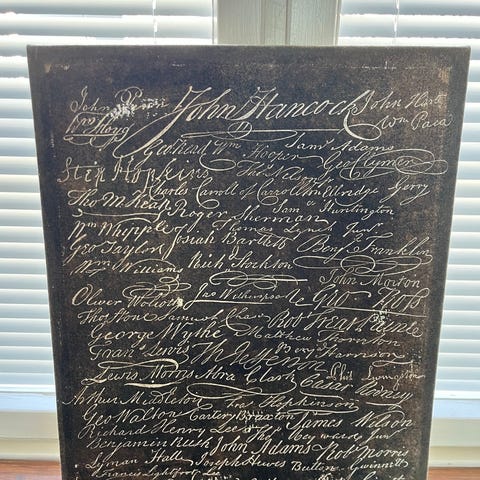 John Penn John Hancock John Hart
Wm Floyd Wm Paca
Geo Read Wm Hooper Sam Adams
Geo Clymer
Step Hopkins
Charles Carroll of Carrollton Elbridge Gerry
Tho M Kean Roger Sherman Sam Huntington
Wm Whipple Thomas Lynch Junr
Geo Taylor Josiah Bartlett Benj Franklin
Wm Williams Rich Stockton John Morton
Oliver Wolcott Jno Witherspoon Geo Ross
Thos Stone Samuel Chase Robt Treat Paine
George Wythe Matthew Thornton
Fran Lewis Th Jefferson Benj Harrison
Lewis Morris Abra Clark Caesar Rodney
Arthur Middleton Fras Hopkinson
Geo Walton Carter Braxton James Wilson
Richard Henry Lee Tho Heyward Jun
Benjamin Rush John Adams Robt Morris
Lyman Hall Joseph Hewes Button Gwinnett
Francis Lightfoot Lee